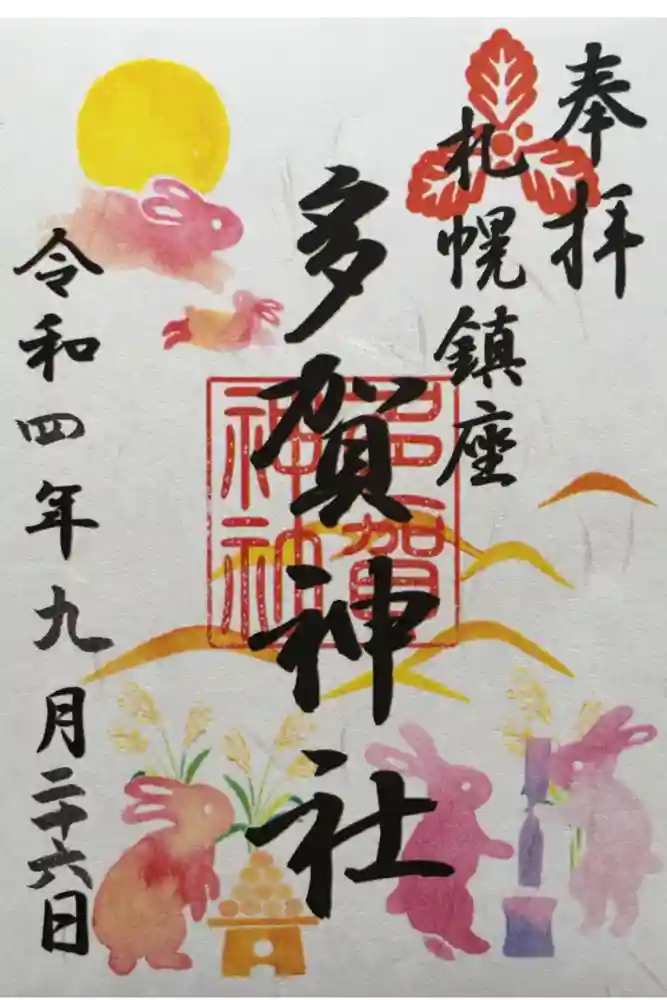 奉拝
札幌鎮座
多賀神社
令和四年九月二十六日
多賀
神社